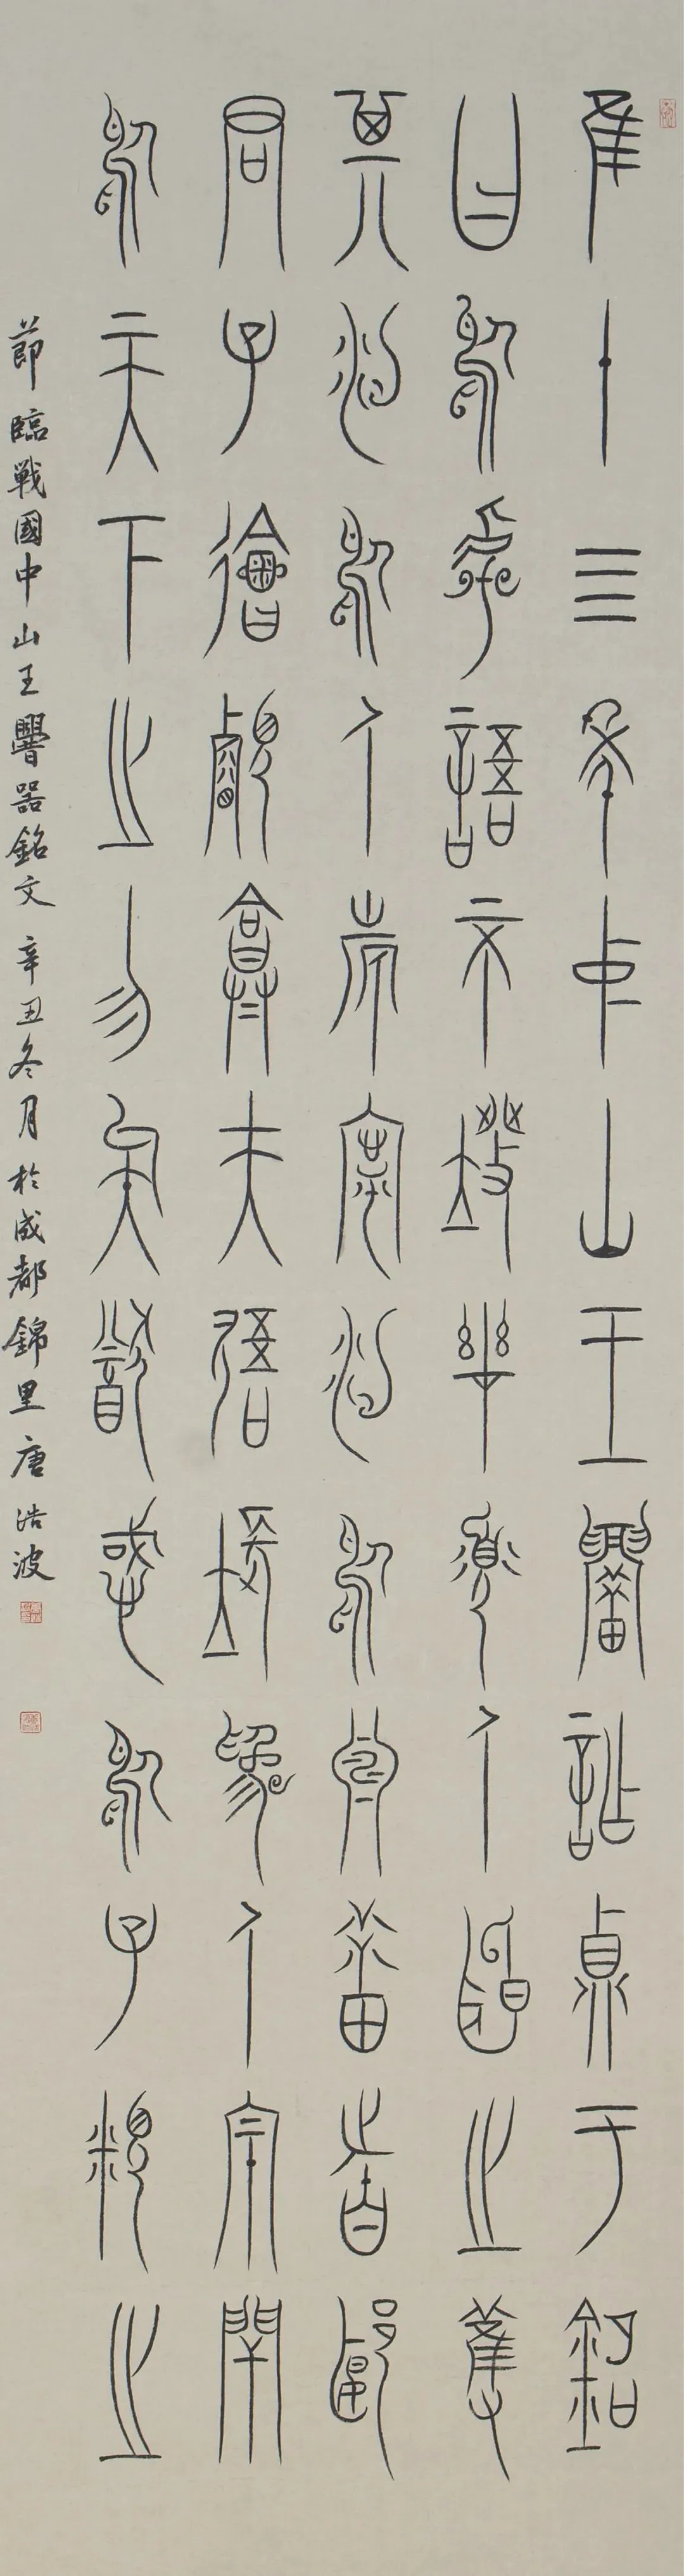 隹十四年中山王𰯼詐鼎于銘
曰於虖語不竢哉寡人聞之蒦
其汋於人也寧汋於淵昔者郾
君子徻覩弇夫悟長為人宗閈
於天下之勿矣猷惑於子粯之
節臨戰國中山王𰯼器銘文 辛丑冬月於成都錦里唐浩波